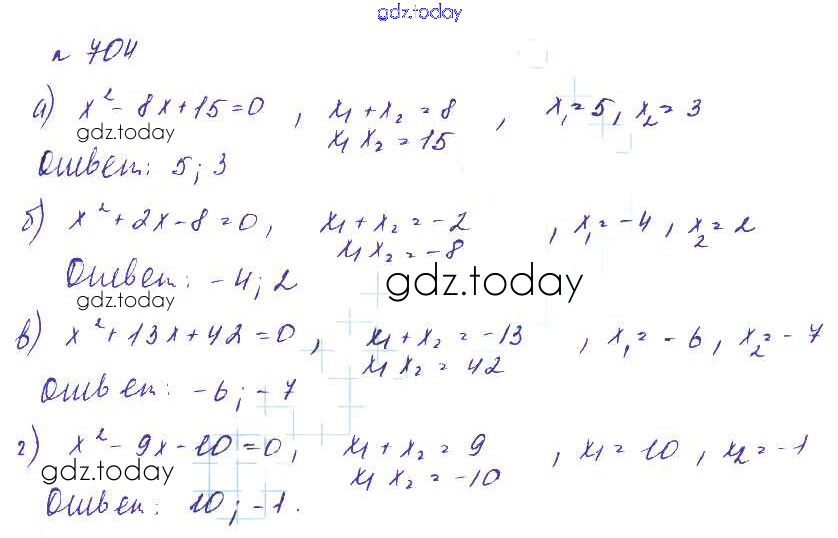 gdz.today
n 704
а) x² - 8x + 15 = 0 , x₁ + x₂ = 8 , x₁ = 5, x₂ = 3
x₁ x₂ = 15
gdz.today
Ответ: 5; 3
б) x² + 2x - 8 = 0, x₁ + x₂ = -2 , x₁ = -4, x₂ = 2
x₁ x₂ = -8
Ответ: -4; 2
gdz.today
gdz.today
в) x² + 13x + 42 = 0 , x₁ + x₂ = -13 , x₁ = -6, x₂ = -7
x₁ x₂ = 42
Ответ: -6; -7
г) x² - 9x - 10 = 0, x₁ + x₂ = 9 , x₁ = 10, x₂ = -1
x₁ x₂ = -10
gdz.today
Ответ: 10; -1.